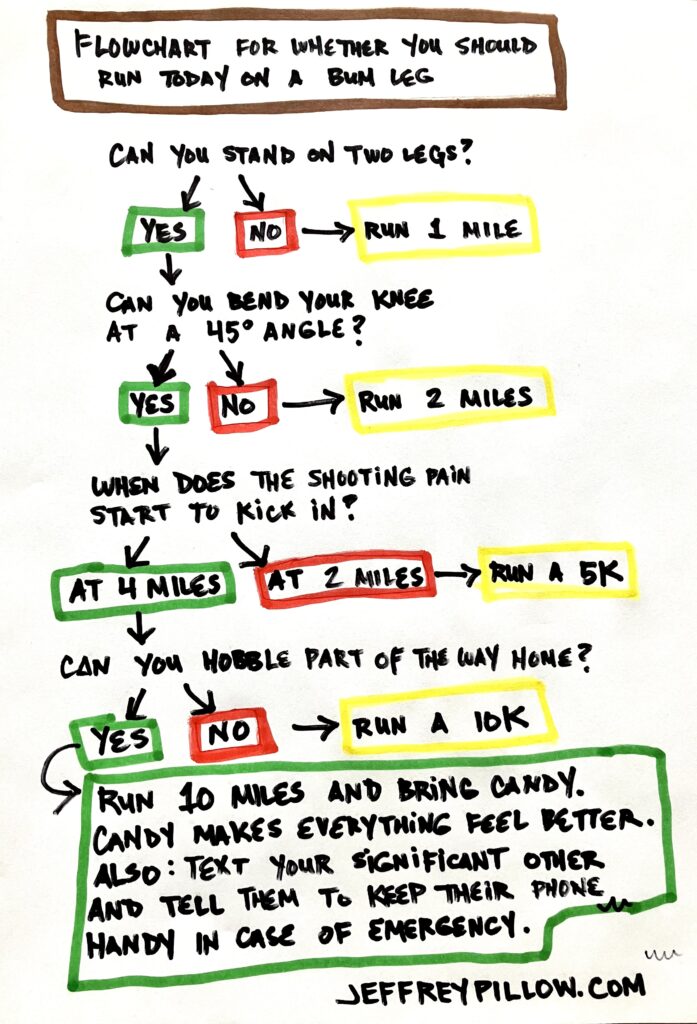 FLOWCHART FOR WHETHER YOU SHOULD
RUN TODAY ON A BUM LEG
CAN YOU STAND ON TWO LEGS?
YES NO RUN 1 MILE
CAN YOU BEND YOUR KNEE
AT A 45° ANGLE?
YES NO RUN 2 MILES
WHEN DOES THE SHOOTING PAIN
START TO KICK IN?
AT 4 MILES AT 2 MILES RUN A 5K
CAN YOU HOBBLE PART OF THE WAY HOME?
YES NO RUN A 10K
RUN 10 MILES AND BRING CANDY.
CANDY MAKES EVERYTHING FEEL BETTER.
ALSO: TEXT YOUR SIGNIFICANT OTHER
AND TELL THEM TO KEEP THEIR PHONE
HANDY IN CASE OF EMERGENCY.
JEFFREYPILLOW.COM